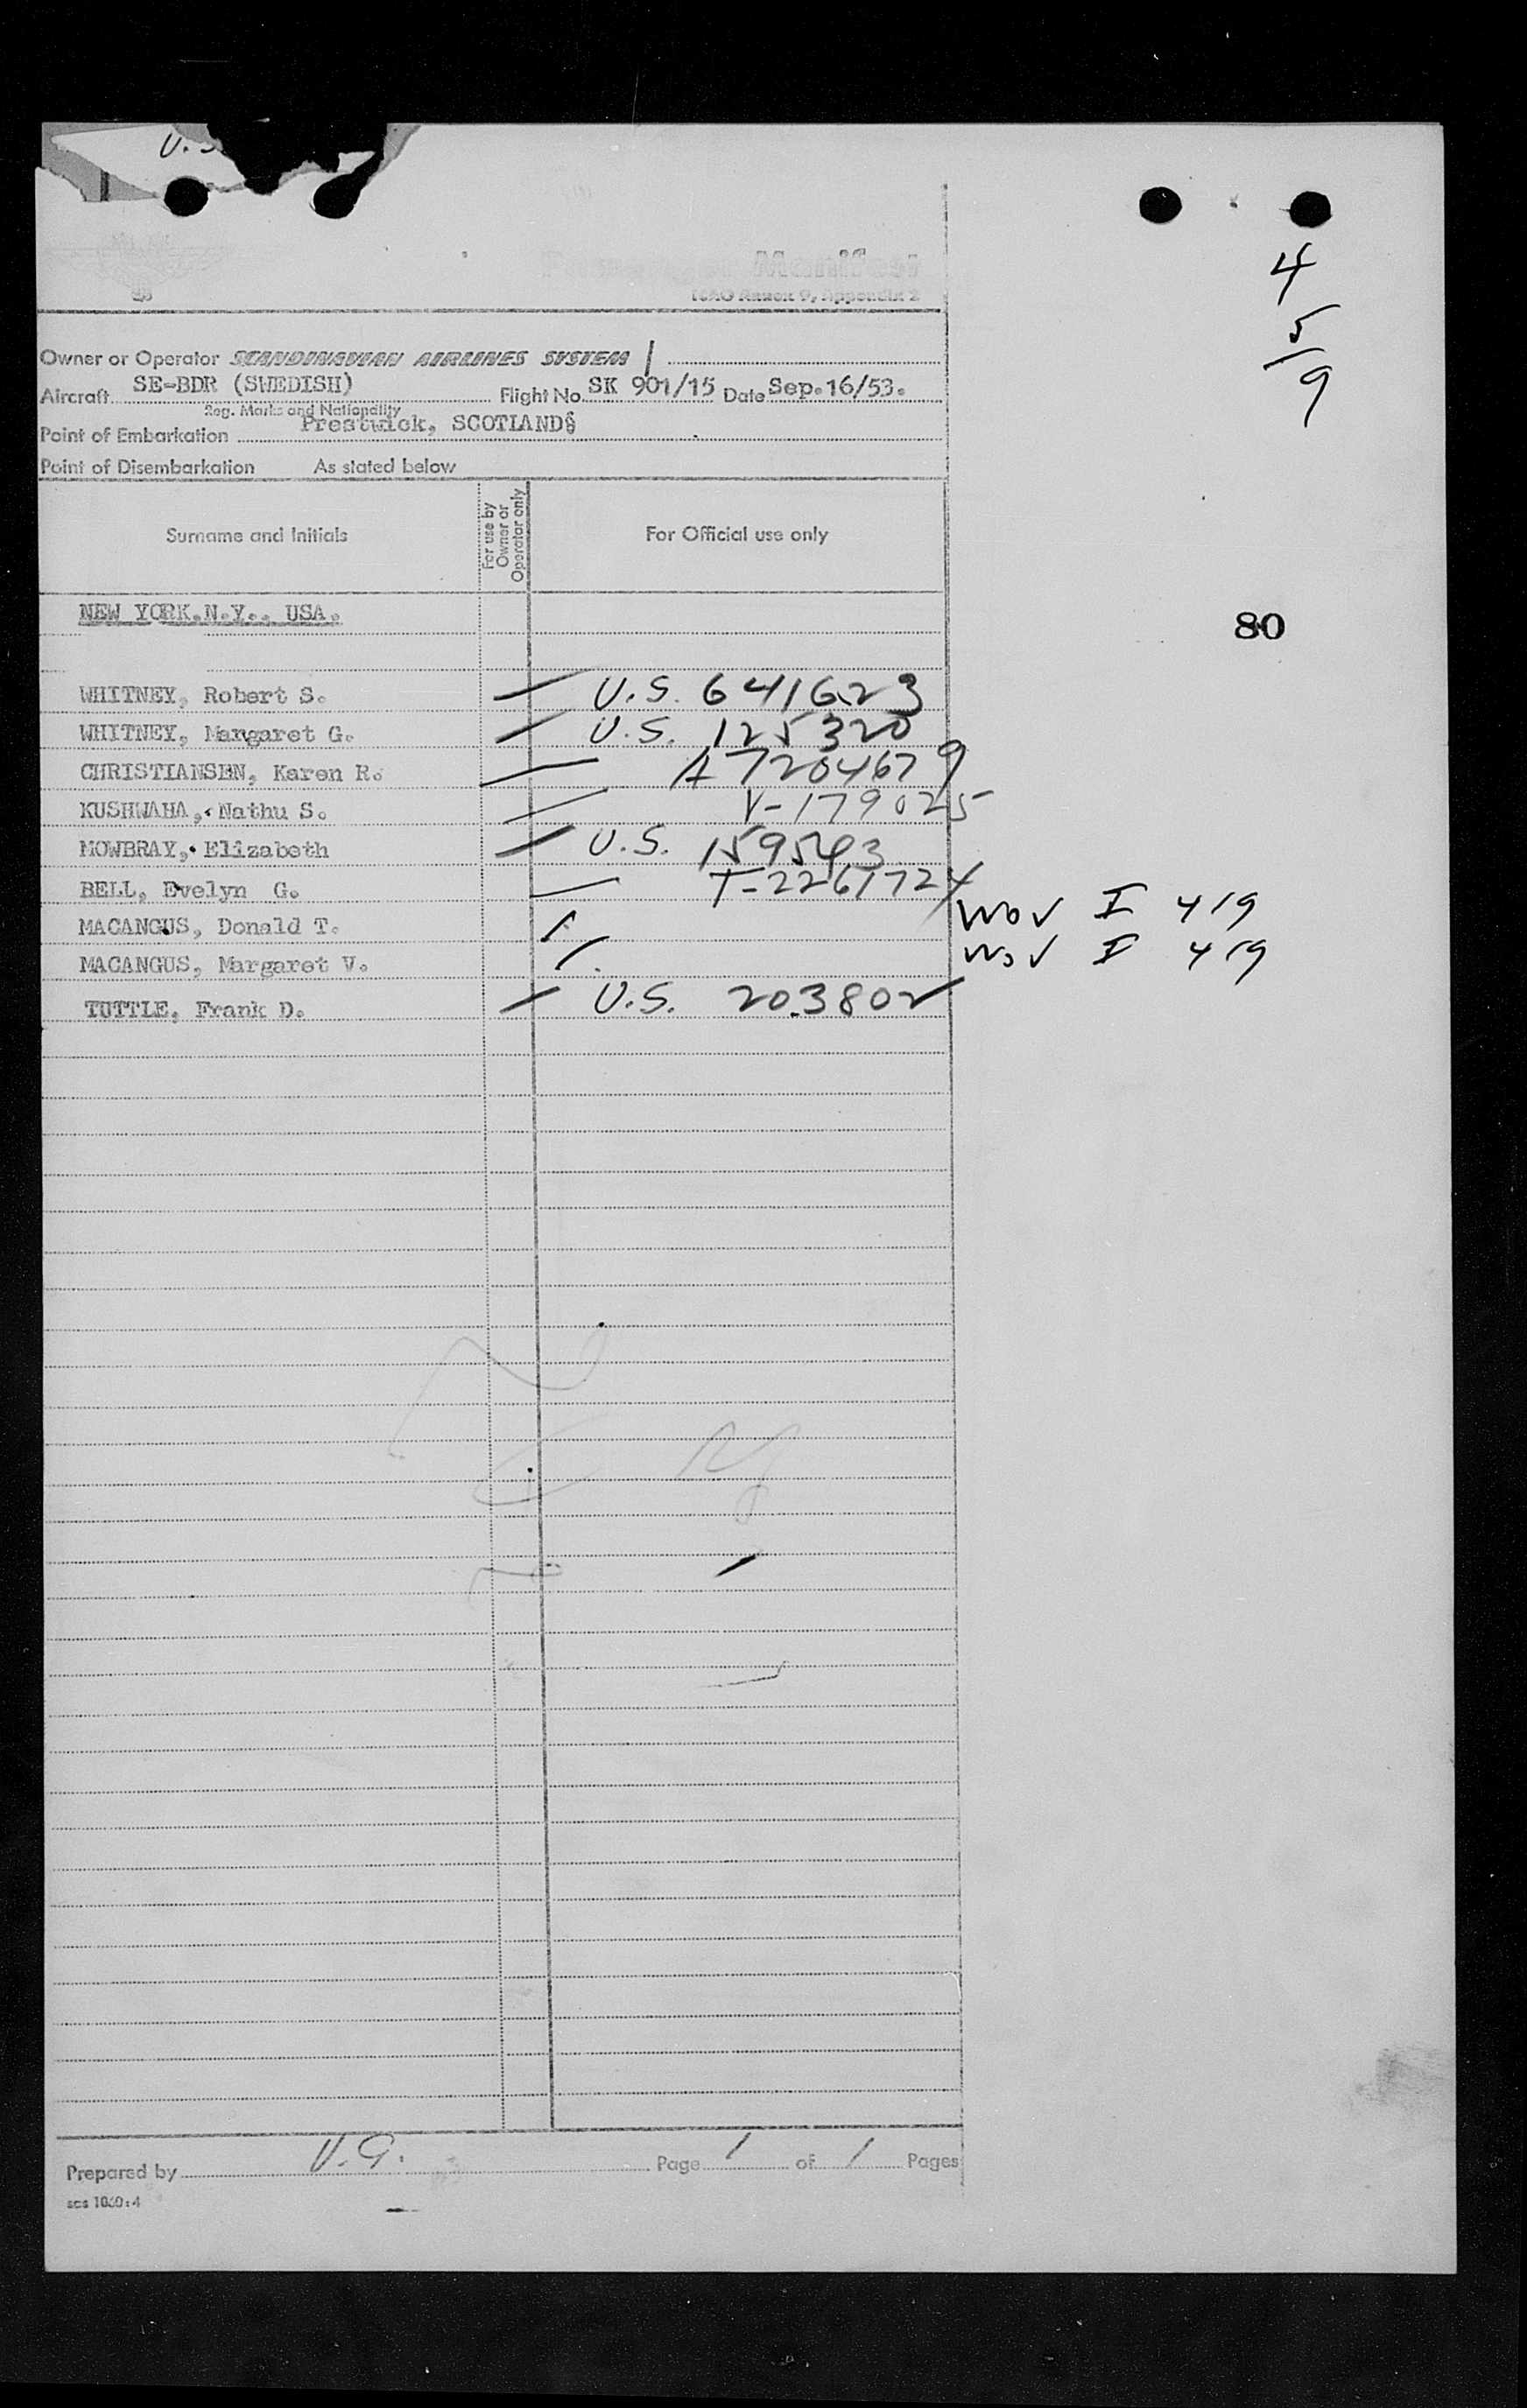 U.S
4
5
9
Passenger Manifest
ICAO Annex 9, Appendix 2
Owner or Operator SCANDINAVIAN AIRLINES SYSTEM
Aircraft SE-BDR (SWEDISH) Flight No. SK 901/15 Date Sep.16/53.
Reg. Marks and Nationality
Point of Embarkation Prestwick, SCOTLAND§
Point of Disembarkation As stated below
Surname and Initials For use by Owner or Operator only For Official use only
NEW YORK.N.Y.. USA.
80
WHITNEY, Robert S. U.S. 641623
WHITNEY, Margaret G. U.S. 125320
CHRISTIANSEN, Karen R. A 7204679
KUSHWAHA, Nathu S. V-179025
MOWBRAY, Elizabeth U.S. 159543
BELL, Evelyn G. T-2261724
MACANGUS, Donald T. I 419
MACANGUS, Margaret V. I 419
TUTTLE, Frank D. U.S. 203802
Prepared by V.G. Page 1 of 1 Pages
scs 1060:4